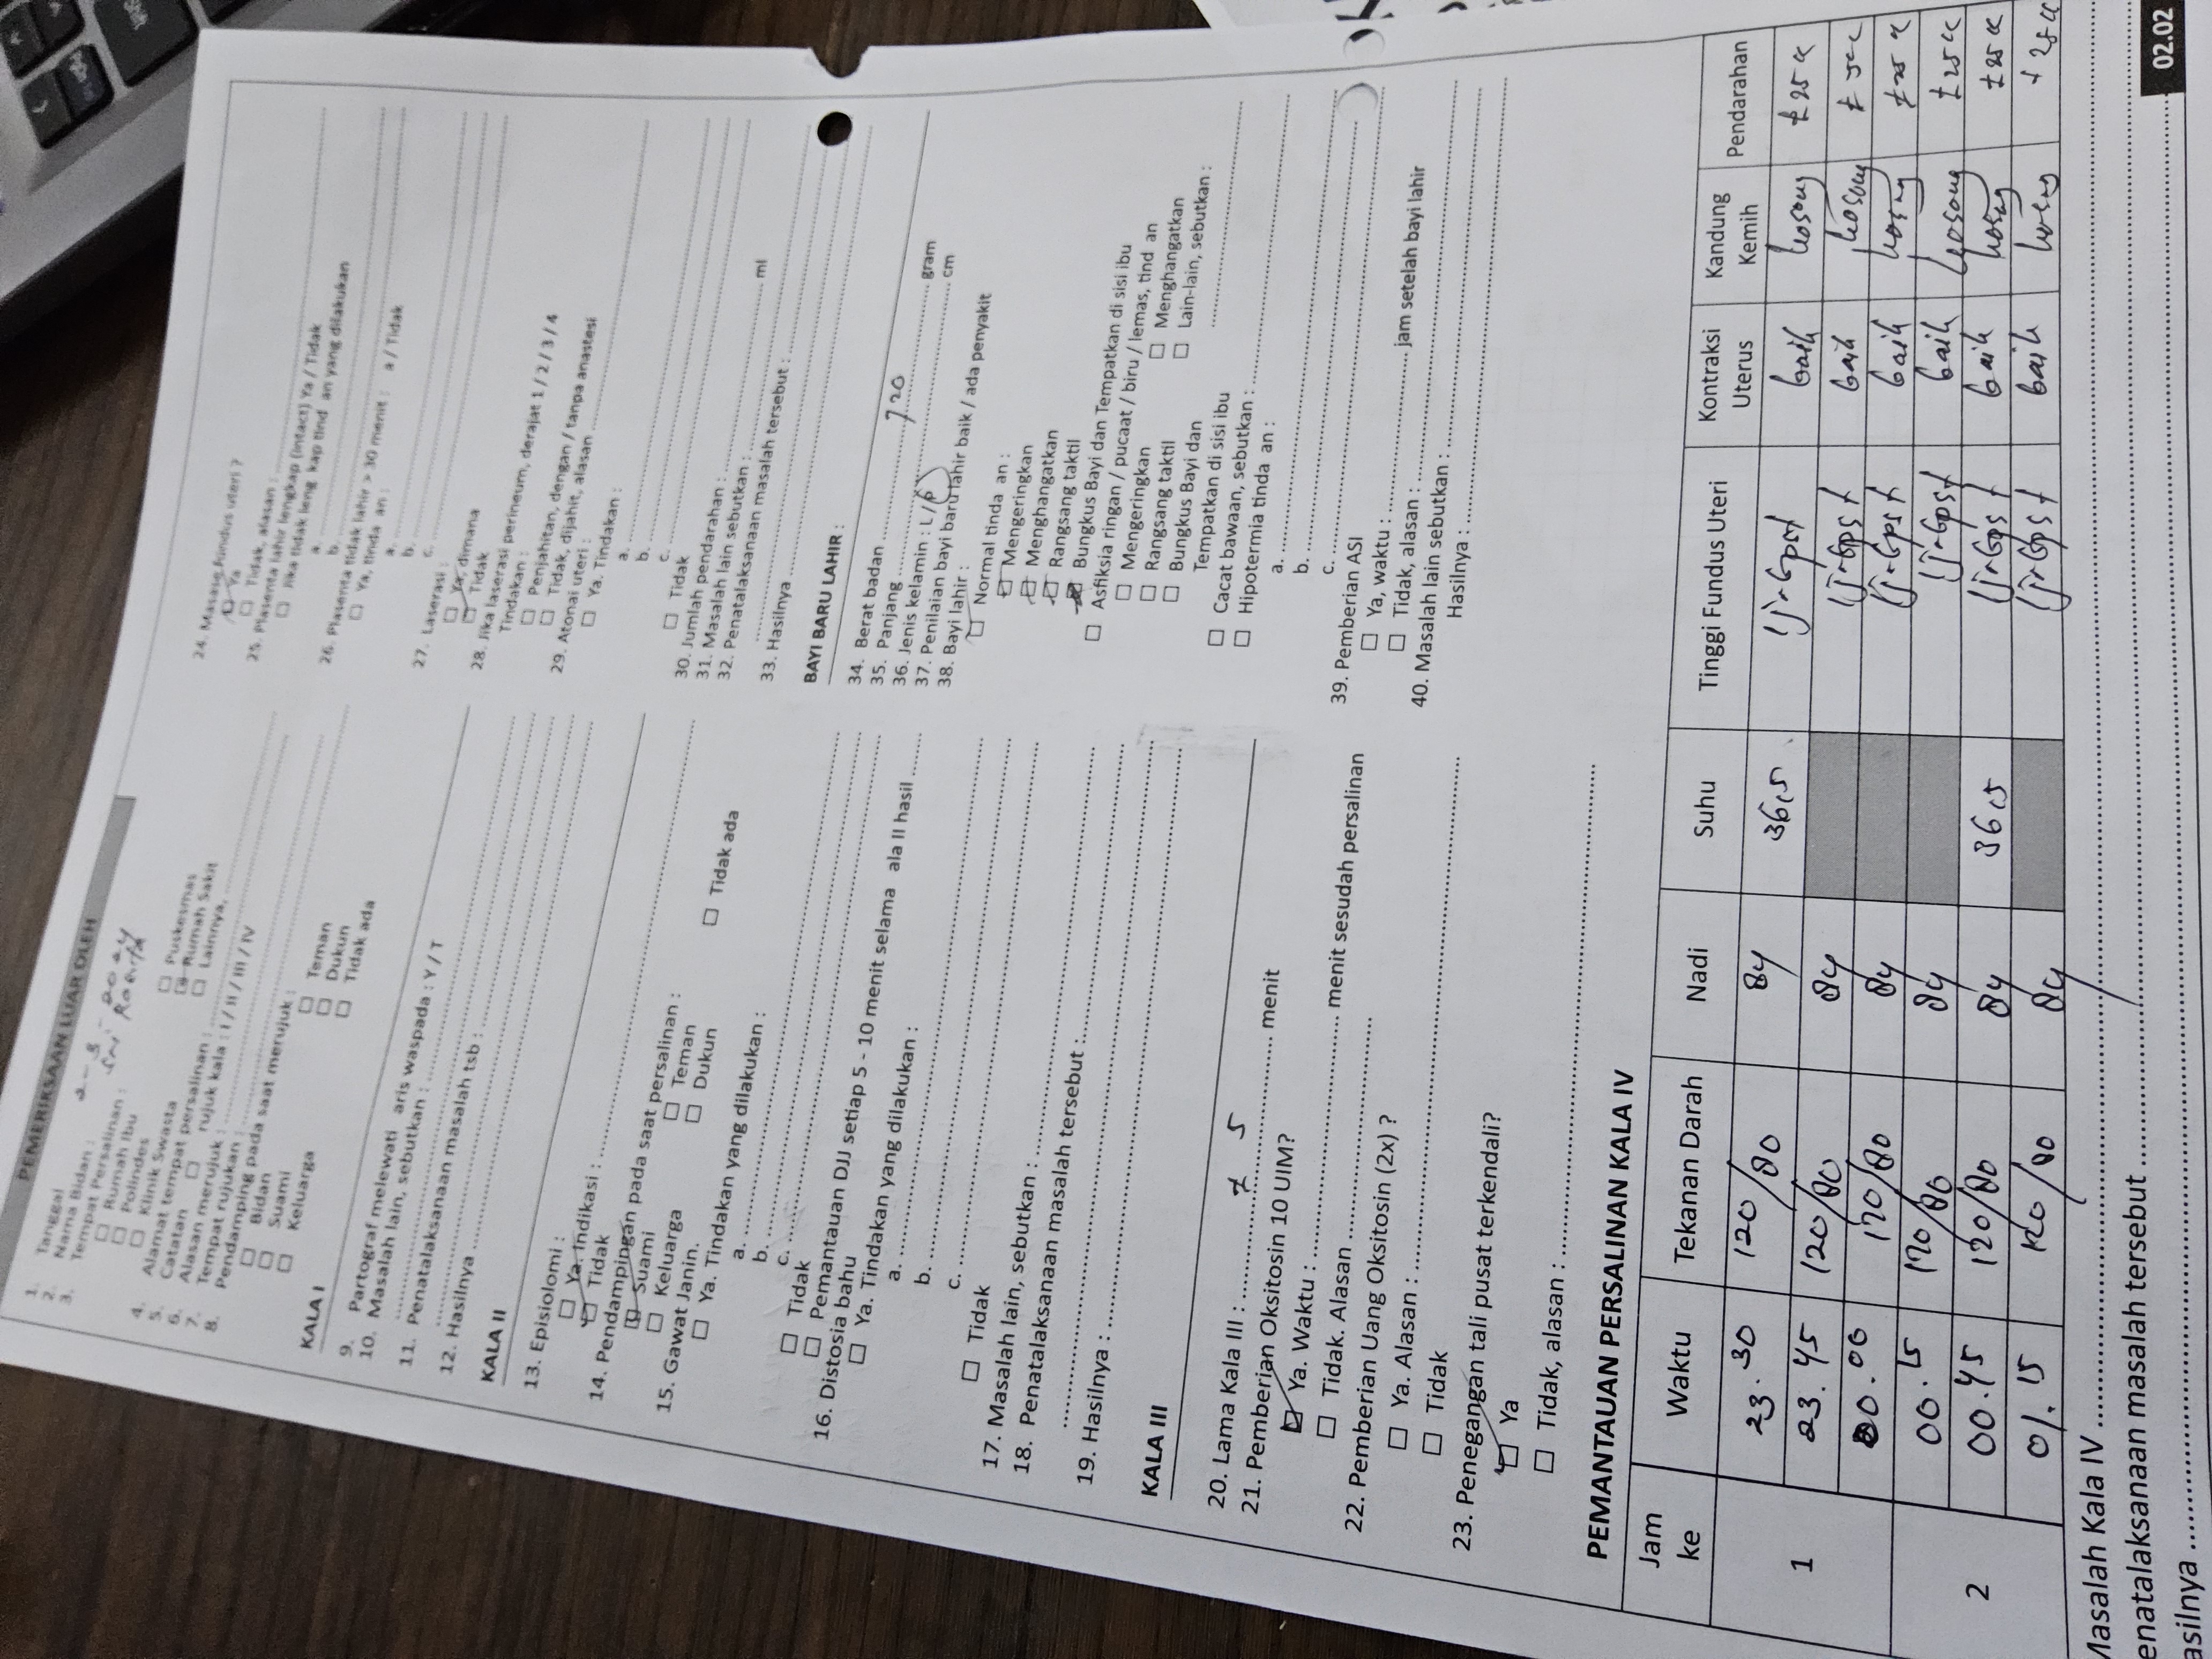 PEMERIKSAAN LUAR OLEH
1. Tanggal
2. Nama Bidan :
3. Tempat Persalinan :
□ Rumah Ibu □ Puskesmas
□ Polindes □ Rumah Sakit
□ Klinik Swasta □ Lainnya,
4. Alamat tempat persalinan :
5. Catatan □ rujuk kala : I / II / III / IV
6. Alasan merujuk :
7. Tempat rujukan :
8. Pendamping pada saat merujuk :
□ Bidan □ Teman
□ Suami □ Dukun
□ Keluarga □ Tidak ada
KALA I
9. Partograf melewati aris waspada : Y / T
10. Masalah lain, sebutkan :
11. Penatalaksanaan masalah tsb :
12. Hasilnya
KALA II
13. Episiolomi :
□ Ya. Indikasi :
□ Tidak
14. Pendampingan pada saat persalinan :
□ Suami □ Teman □ Tidak ada
□ Keluarga □ Dukun
15. Gawat Janin.
□ Ya. Tindakan yang dilakukan :
a.
b.
c.
□ Tidak
□ Pemantauan DJJ setiap 5 - 10 menit selama ala II hasil
16. Distosia bahu
□ Ya. Tindakan yang dilakukan :
a.
b.
c.
□ Tidak
17. Masalah lain, sebutkan :
18. Penatalaksanaan masalah tersebut :
19. Hasilnya :
KALA III
20. Lama Kala III : 5 menit
21. Pemberian Oksitosin 10 UIM?
□ Ya. Waktu : menit sesudah persalinan
□ Tidak. Alasan
22. Pemberian Uang Oksitosin (2x) ?
□ Ya. Alasan :
□ Tidak
23. Penegangan tali pusat terkendali?
□ Ya
□ Tidak, alasan :
24. Masase fundus uteri ?
□ Ya
□ Tidak, alasan :
25. Plasenta lahir lengkap (intact) Ya / Tidak
□ Jika tidak leng kap tind an yang dilakukan
a.
b.
26. Plasenta tidak lahir > 30 menit : a / Tidak
□ Ya, tinda an :
a.
b.
c.
27. Laserasi :
□ Ya, dimana
□ Tidak
28. Jika laserasi perineum, derajat 1 / 2 / 3 / 4
Tindakan :
□ Penjahitan, dengan / tanpa anastesi
□ Tidak, dijahit, alasan
29. Atonai uteri :
□ Ya. Tindakan :
a.
b.
c.
□ Tidak
30. Jumlah pendarahan : ml
31. Masalah lain sebutkan :
32. Penatalaksanaan masalah tersebut :
33. Hasilnya
BAYI BARU LAHIR :
34. Berat badan 720 gram
35. Panjang cm
36. Jenis kelamin : L / P
37. Penilaian bayi baru lahir baik / ada penyakit
38. Bayi lahir :
□ Normal tinda an :
□ Mengeringkan
□ Menghangatkan
□ Rangsang taktil
□ Bungkus Bayi dan Tempatkan di sisi ibu
□ Asfiksia ringan / pucaat / biru / lemas, tind an
□ Mengeringkan □ Menghangatkan
□ Rangsang taktil □ Lain-lain, sebutkan :
□ Bungkus Bayi dan
Tempatkan di sisi ibu
□ Cacat bawaan, sebutkan :
□ Hipotermia tinda an :
a.
b.
c.
39. Pemberian ASI
□ Ya, waktu : jam setelah bayi lahir
□ Tidak, alasan :
40. Masalah lain sebutkan :
Hasilnya :
PEMANTAUAN PERSALINAN KALA IV
Jam ke Waktu Tekanan Darah Nadi Suhu Tinggi Fundus Uteri Kontraksi Uterus Kandung Kemih Pendarahan
1 23.30 120/80 84 36,5 baik kosong
23.45 120/80 84 baik kosong
00.00 120/80 84 baik kosong
2 00.15 120/80 84 baik kosong
00.45 120/80 84 36,5 baik kosong
01.15 120/80 84 baik kosong
Masalah Kala IV
enatalaksanaan masalah tersebut
asilnya
02.02